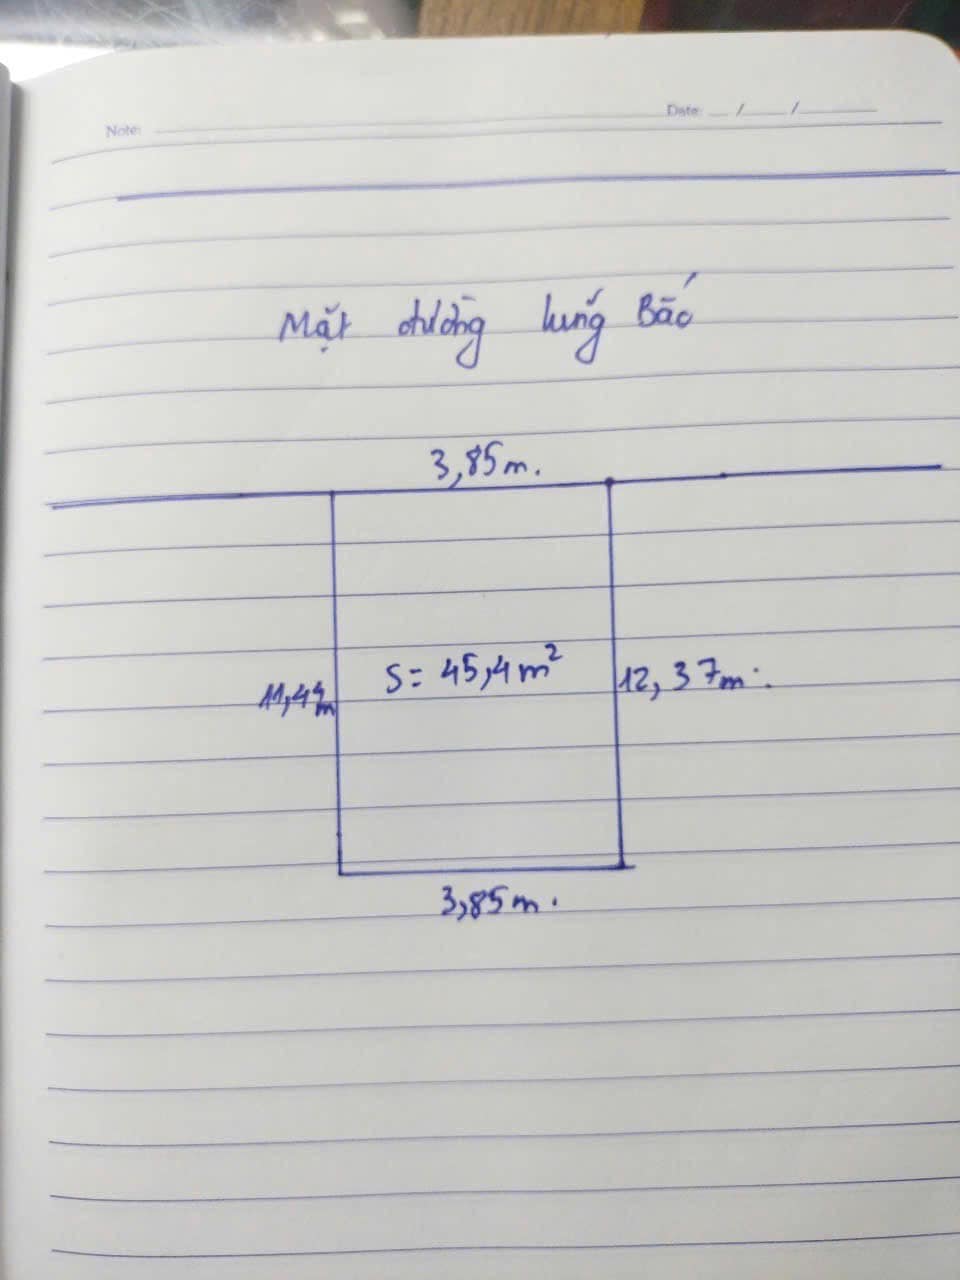 Note:
Date: / /
Mặt đường lưng Bão
3,85m.
S= 45,4m²
12,37m
3,85m.